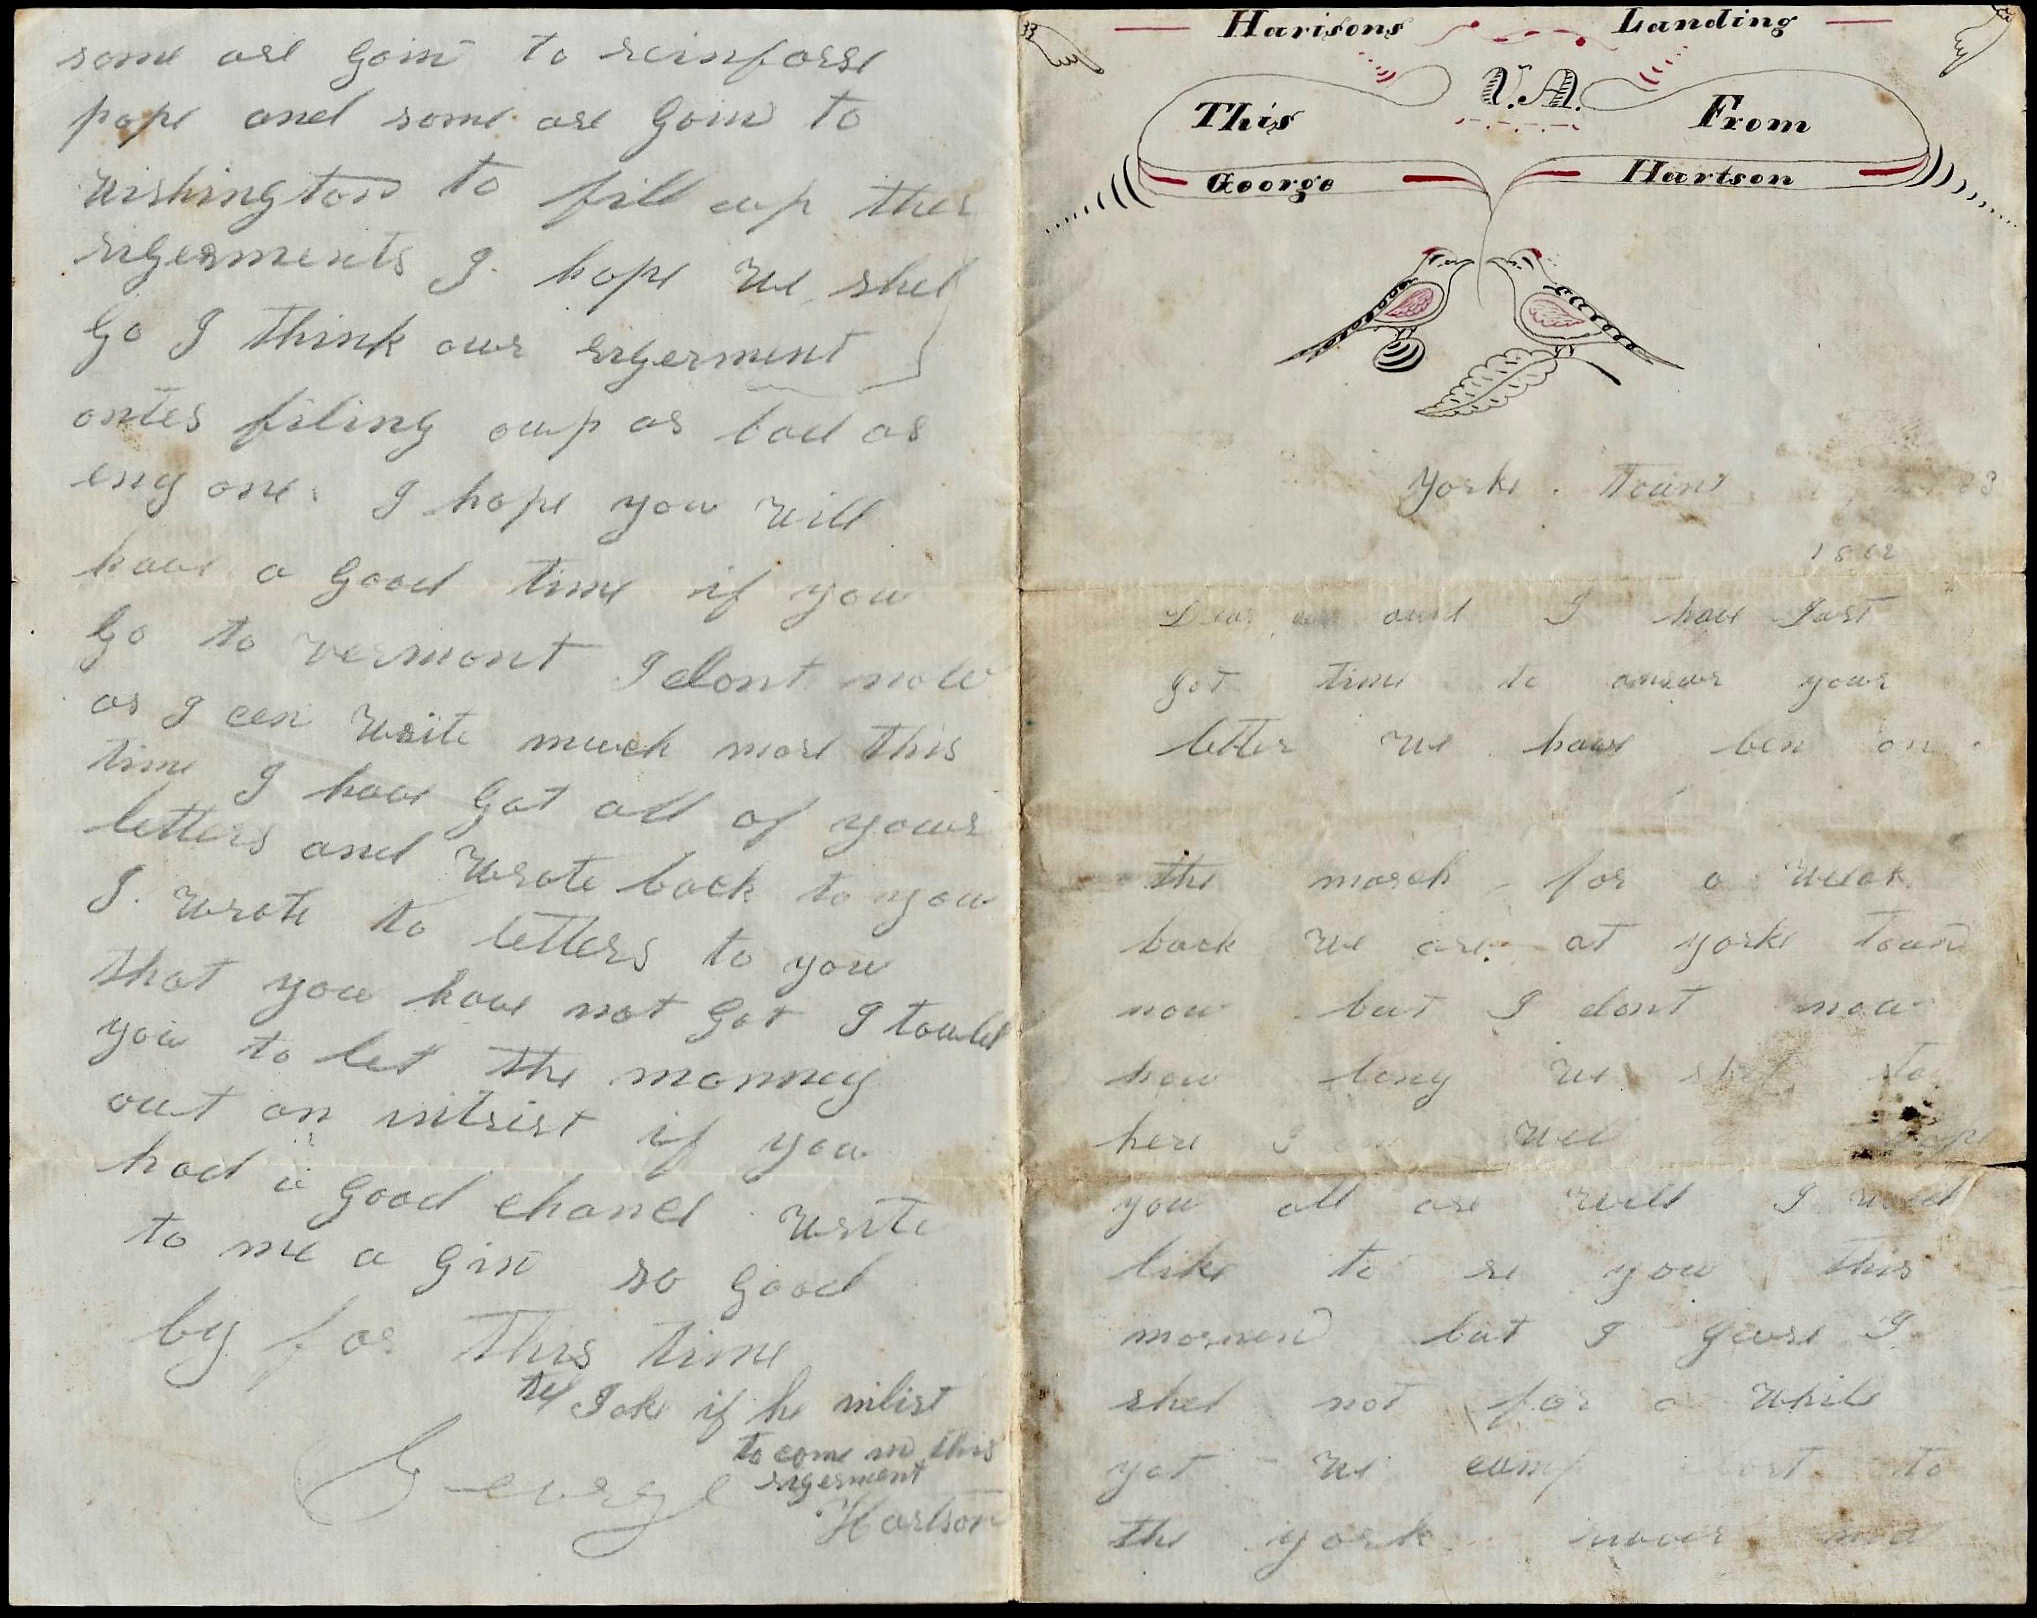 Harisons Landing
V.A.
This From
George Hartson
Yorke Toune 23
1862
Dear aunt I have Jast
got time to answr your
letter we have ben on
the march for a weeak
back we are at yorke toun
now but I dont now
how long we shel sta
here I am well hope
you all are well I wod
like to se you this
mornen but I guese I
shel not for a while
yet we camp to
the york
some are goin to reinforse
pope and some are goin to
wishington to fill oup ther
rigerments I hope we shel
go I think our rigerment
ontes filing oup as bad as
eny one. I hope you will
have a good time if you
go to vermont I dont now
as I can write much more this
time I have got all of your
letters and wrote back to you
I wrote to letters to you
that you have not got I tould
you to let the monney
out on intrist if you
had a good chance write
to me a gin so good
by for this time
tel Jake if he inlist
to come in this
rigerment
George Hartson